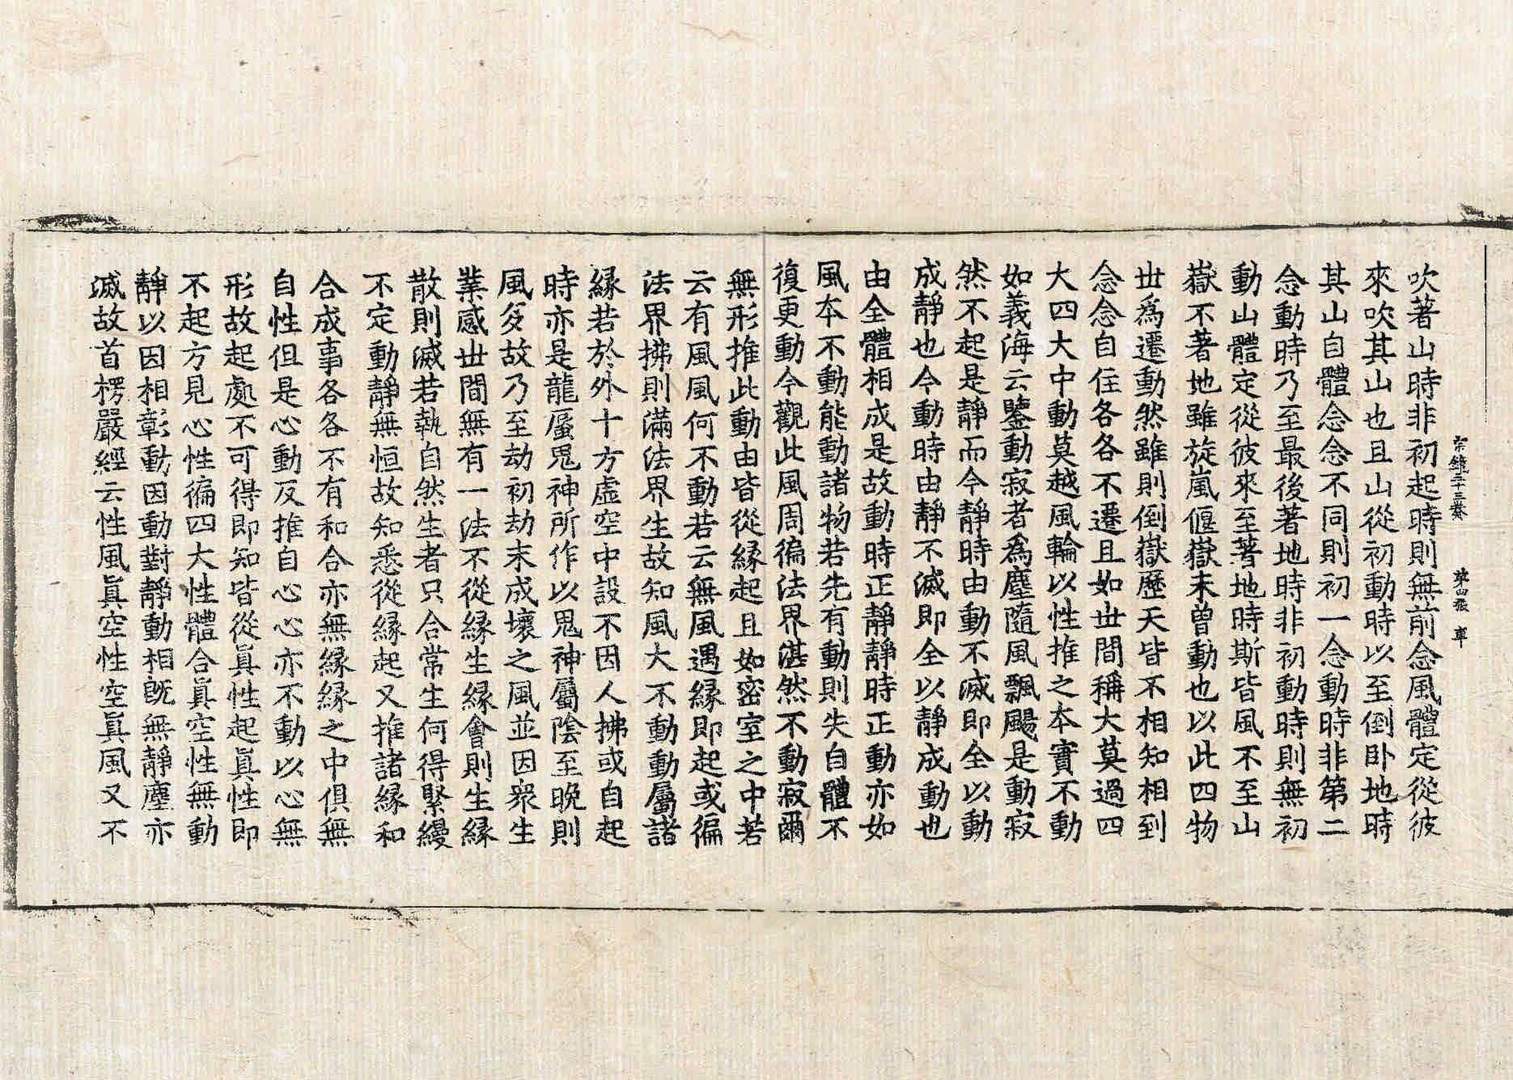 宗鏡三十三卷 第四張
吹著山時非初起時則無前念風體定從彼
來吹其山也且山從初動時以至倒卧地時
其山自體念念不同則初一念動時非第二
念動時乃至最後著地時非初動時則無初
動山體定從彼來至著地時斯皆風不至山
嶽不著地雖旋嵐偃嶽未曾動也以此四物
世爲遷動然雖則倒嶽歷天皆不相知相到
念念自住各各不遷且如世間稱大莫過四
大四大中動莫越風輪以性推之本實不動
如義海云鑒動寂者爲塵隨風飄颺是動寂
然不起是靜而今靜時由動不滅即全以動
成靜也今動時由靜不滅即全以靜成動也
由全體相成是故動時正靜靜時正動亦如
風本不動能動諸物若先有動則失自體不
復更動今觀此風周徧法界湛然不動寂爾
無形推此動由皆從緣起且如密室之中若
云有風風何不動若云無風遇緣即起或徧
法界拂則滿法界生故知風大不動動屬諸
緣若於外十方虛空中設不因人拂或自起
時亦是龍蜃鬼神所作以鬼神屬陰至晚則
風多故乃至劫初劫末成壞之風並因衆生
業感世間無有一法不從緣生緣會則生緣
散則滅若執自然生者只合常生何得緊縵
不定動靜無恒故知悉從緣起又推諸緣和
合成事各各不有和合亦無緣緣之中俱無
自性但是心動反推自心心亦不動以心無
形故起處不可得即知皆從眞性起眞性即
不起方見心性徧四大性體合眞空性無動
靜以因相彰動因動對靜動相旣無靜塵亦
滅故首楞嚴經云性風眞空性空眞風又不